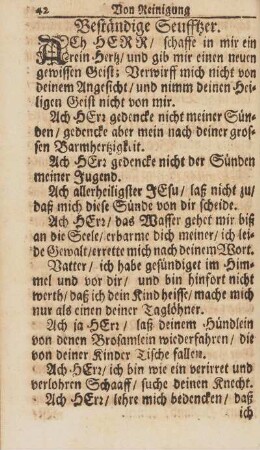 42 Von Reinigung
Beständige Seufftzer.
ACh HERR/ schaffe in mir ein
rein Hertz/ und gib mir einen neuen
gewissen Geist; Verwirff mich nicht von
deinem Angesicht/ und nimm deinen Hei-
ligen Geist nicht von mir.
Ach HErr gedencke nicht meiner Sün-
den/ gedencke aber mein nach deiner gros-
sen Barmhertzigkeit.
Ach HErr gedencke nicht der Sünden
meiner Jugend.
Ach allerheiligster JEsu/ laß nicht zu/
daß mich diese Sünde von dir scheide.
Ach HErr/ das Wasser gehet mir biß
an die Seele/ erbarme dich meiner/ ich lei-
de Gewalt/ errette mich nach deinem Wort.
Vatter/ ich habe gesündiget im Him-
mel und vor dir/ und bin hinfort nicht
werth/ daß ich dein Kind heisse/ mache mich
nur als einen deiner Taglöhner.
Ach ja HErr/ laß deinem Hündlein
von denen Brosamlein wiederfahren/ die
von deiner Kinder Tische fallen.
Ach HErr/ ich bin wie ein verirret und
verlohren Schaaff/ suche deinen Knecht.
Ach HErr/ lehre mich bedencken/ daß
ich